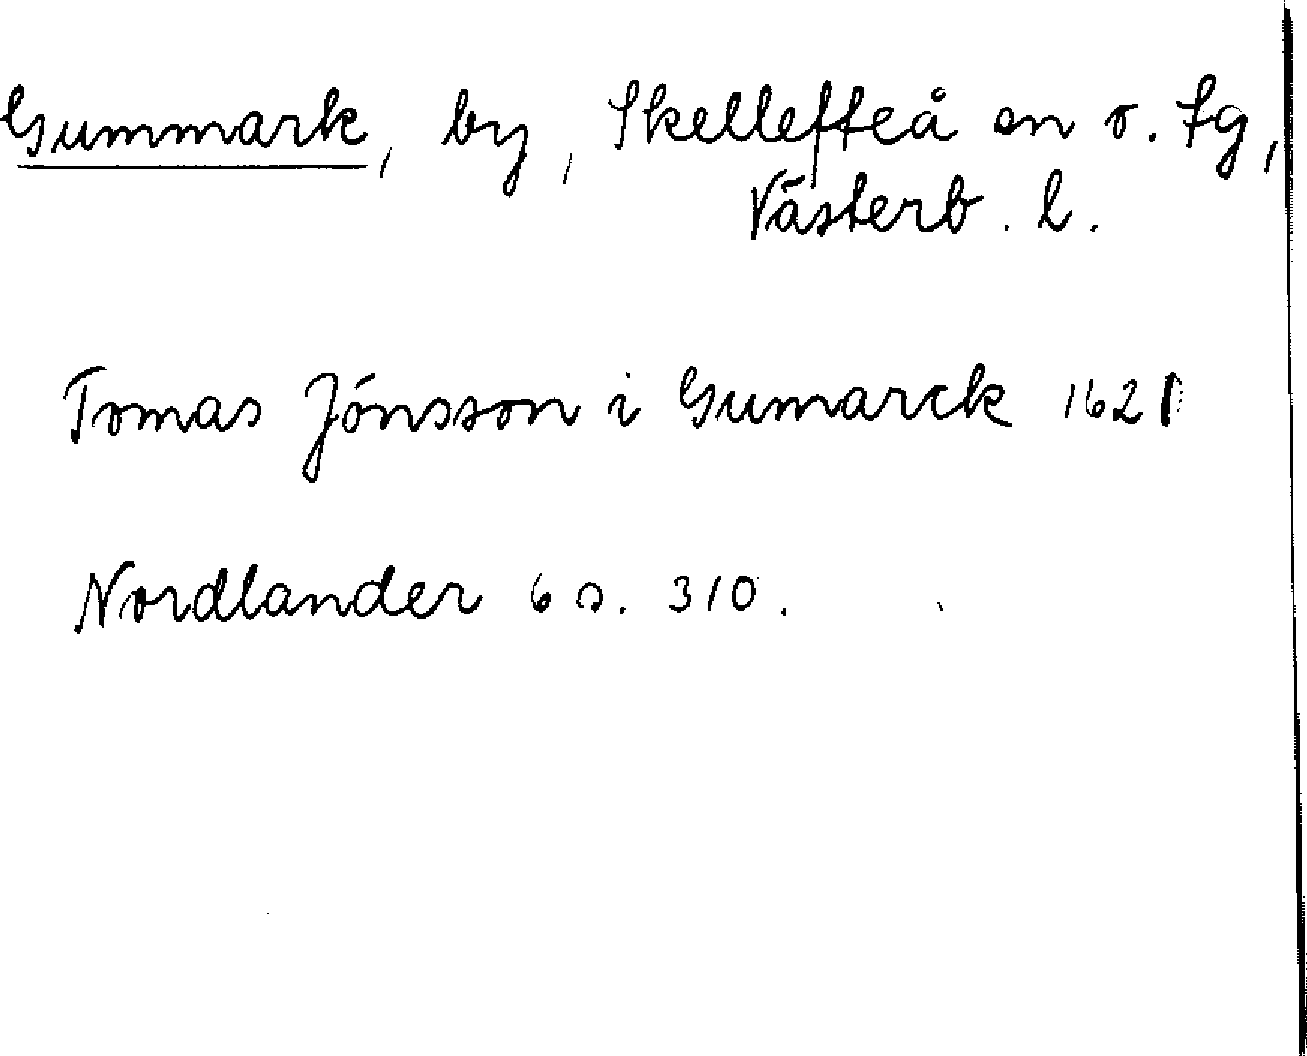 Gummark, by, Skellefteå sn o. tg,
Västerb. l.
Tomas Jónsson i Gumarck 1621
Nordlander 6 s. 310.